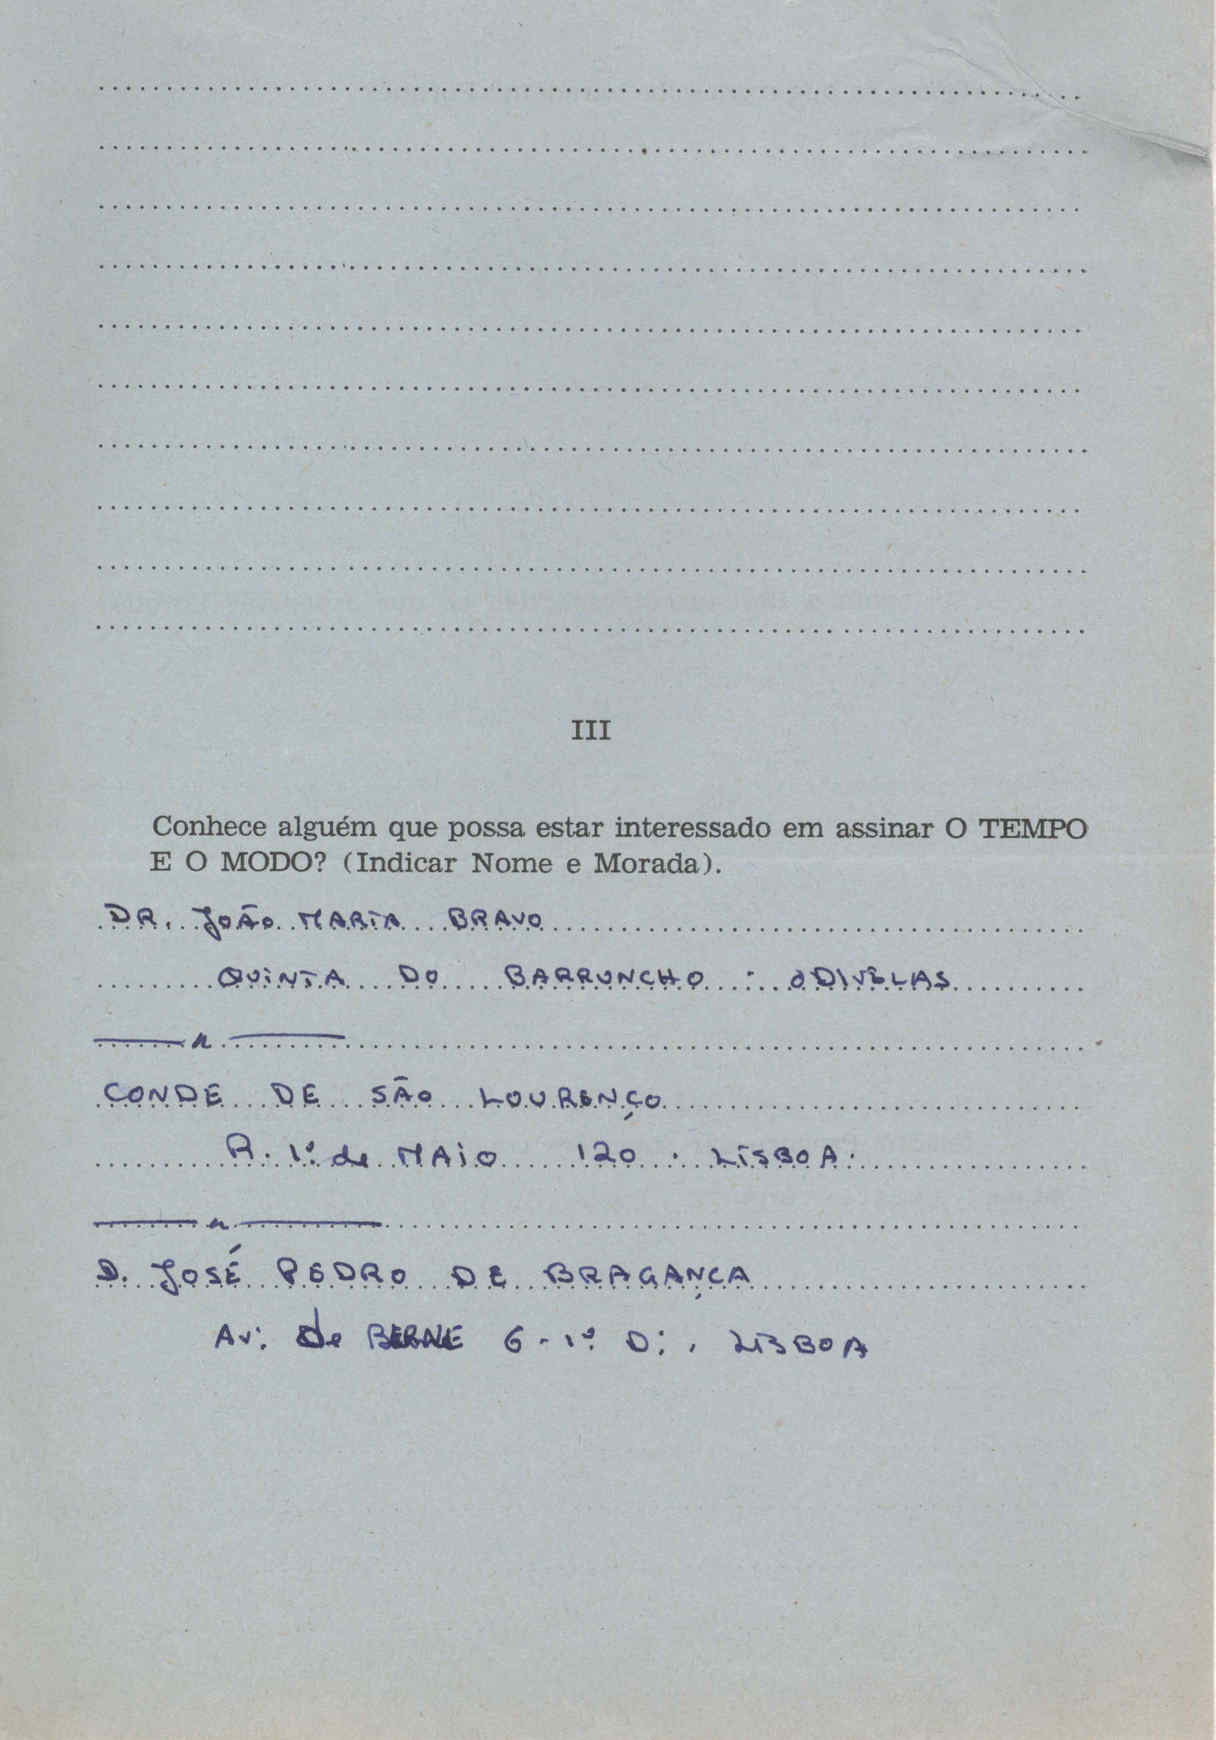 III
Conhece alguém que possa estar interessado em assinar O TEMPO
E O MODO? (Indicar Nome e Morada).
DR. JOÃO MARIA BRAVO
QUINTA DO BARRUNCHO - ODIVELAS
CONDE DE SÃO LOURENÇO
R. 1º de MAIO 120 . LISBOA.
D. JOSÉ PEDRO DE BRAGANÇA
Av. de BERNE 6 - 1º D. , LISBOA